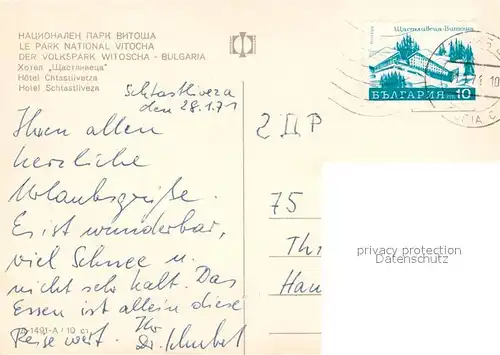 НАЦИОНАЛЕН ПАРК ВИТОША
LE PARK NATIONAL VITOCHA
DER VOLKSPARK WITOSCHA - BULGARIA
Хотел „Щастливеца“
Hôtel Chtastlivetza
Hotel Schtastliveza
Щастливеца - Витоша
БЪЛГАРИЯ
10
Schtastliveza
den 28.1.71
Ihnen allen
herzliche
Urlaubsgrüße.
Es ist wunderbar,
viel Schnee u.
nicht sehr kalt. Das
Essen ist allein diese
Reise wert. Ihr
Dr. Schubel
2 ДР
75
Th
Hau
privacy protection
Datenschutz
1491-A / 10